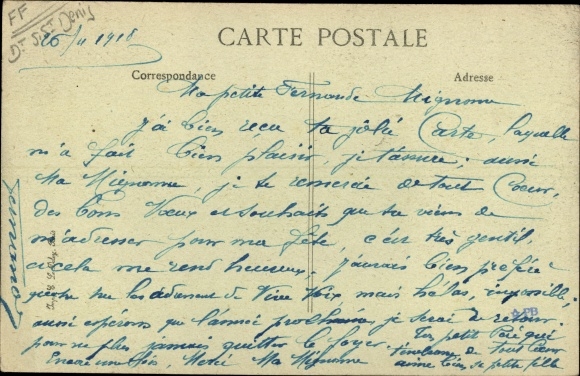 FF
Dt S. St Denis
26/11 1918
CARTE POSTALE
Correspondance
Adresse
Ma petite Fernande Mignonne
J'ai bien reçu ta jolie Carte, laquelle
m'a fait bien plaisir, je t'assure; aussi
Ma Mignonne, je te remercie de tout Coeur,
des bons Voeux et souhaits que tu viens de
m'adresser pour ma fête, c'est très gentil,
et cela me rend heureux, j'aurais bien préféré
que tu me les de Vive Voix, mais hélas, impossible,
aussi espérons que l'année prochaine, je serai de retour
pour ne plus jamais quitter le foyer. Ton petit Père qui
de tout Coeur
Encore une fois, Merci Ma Mignonne
aime bien sa petite fille